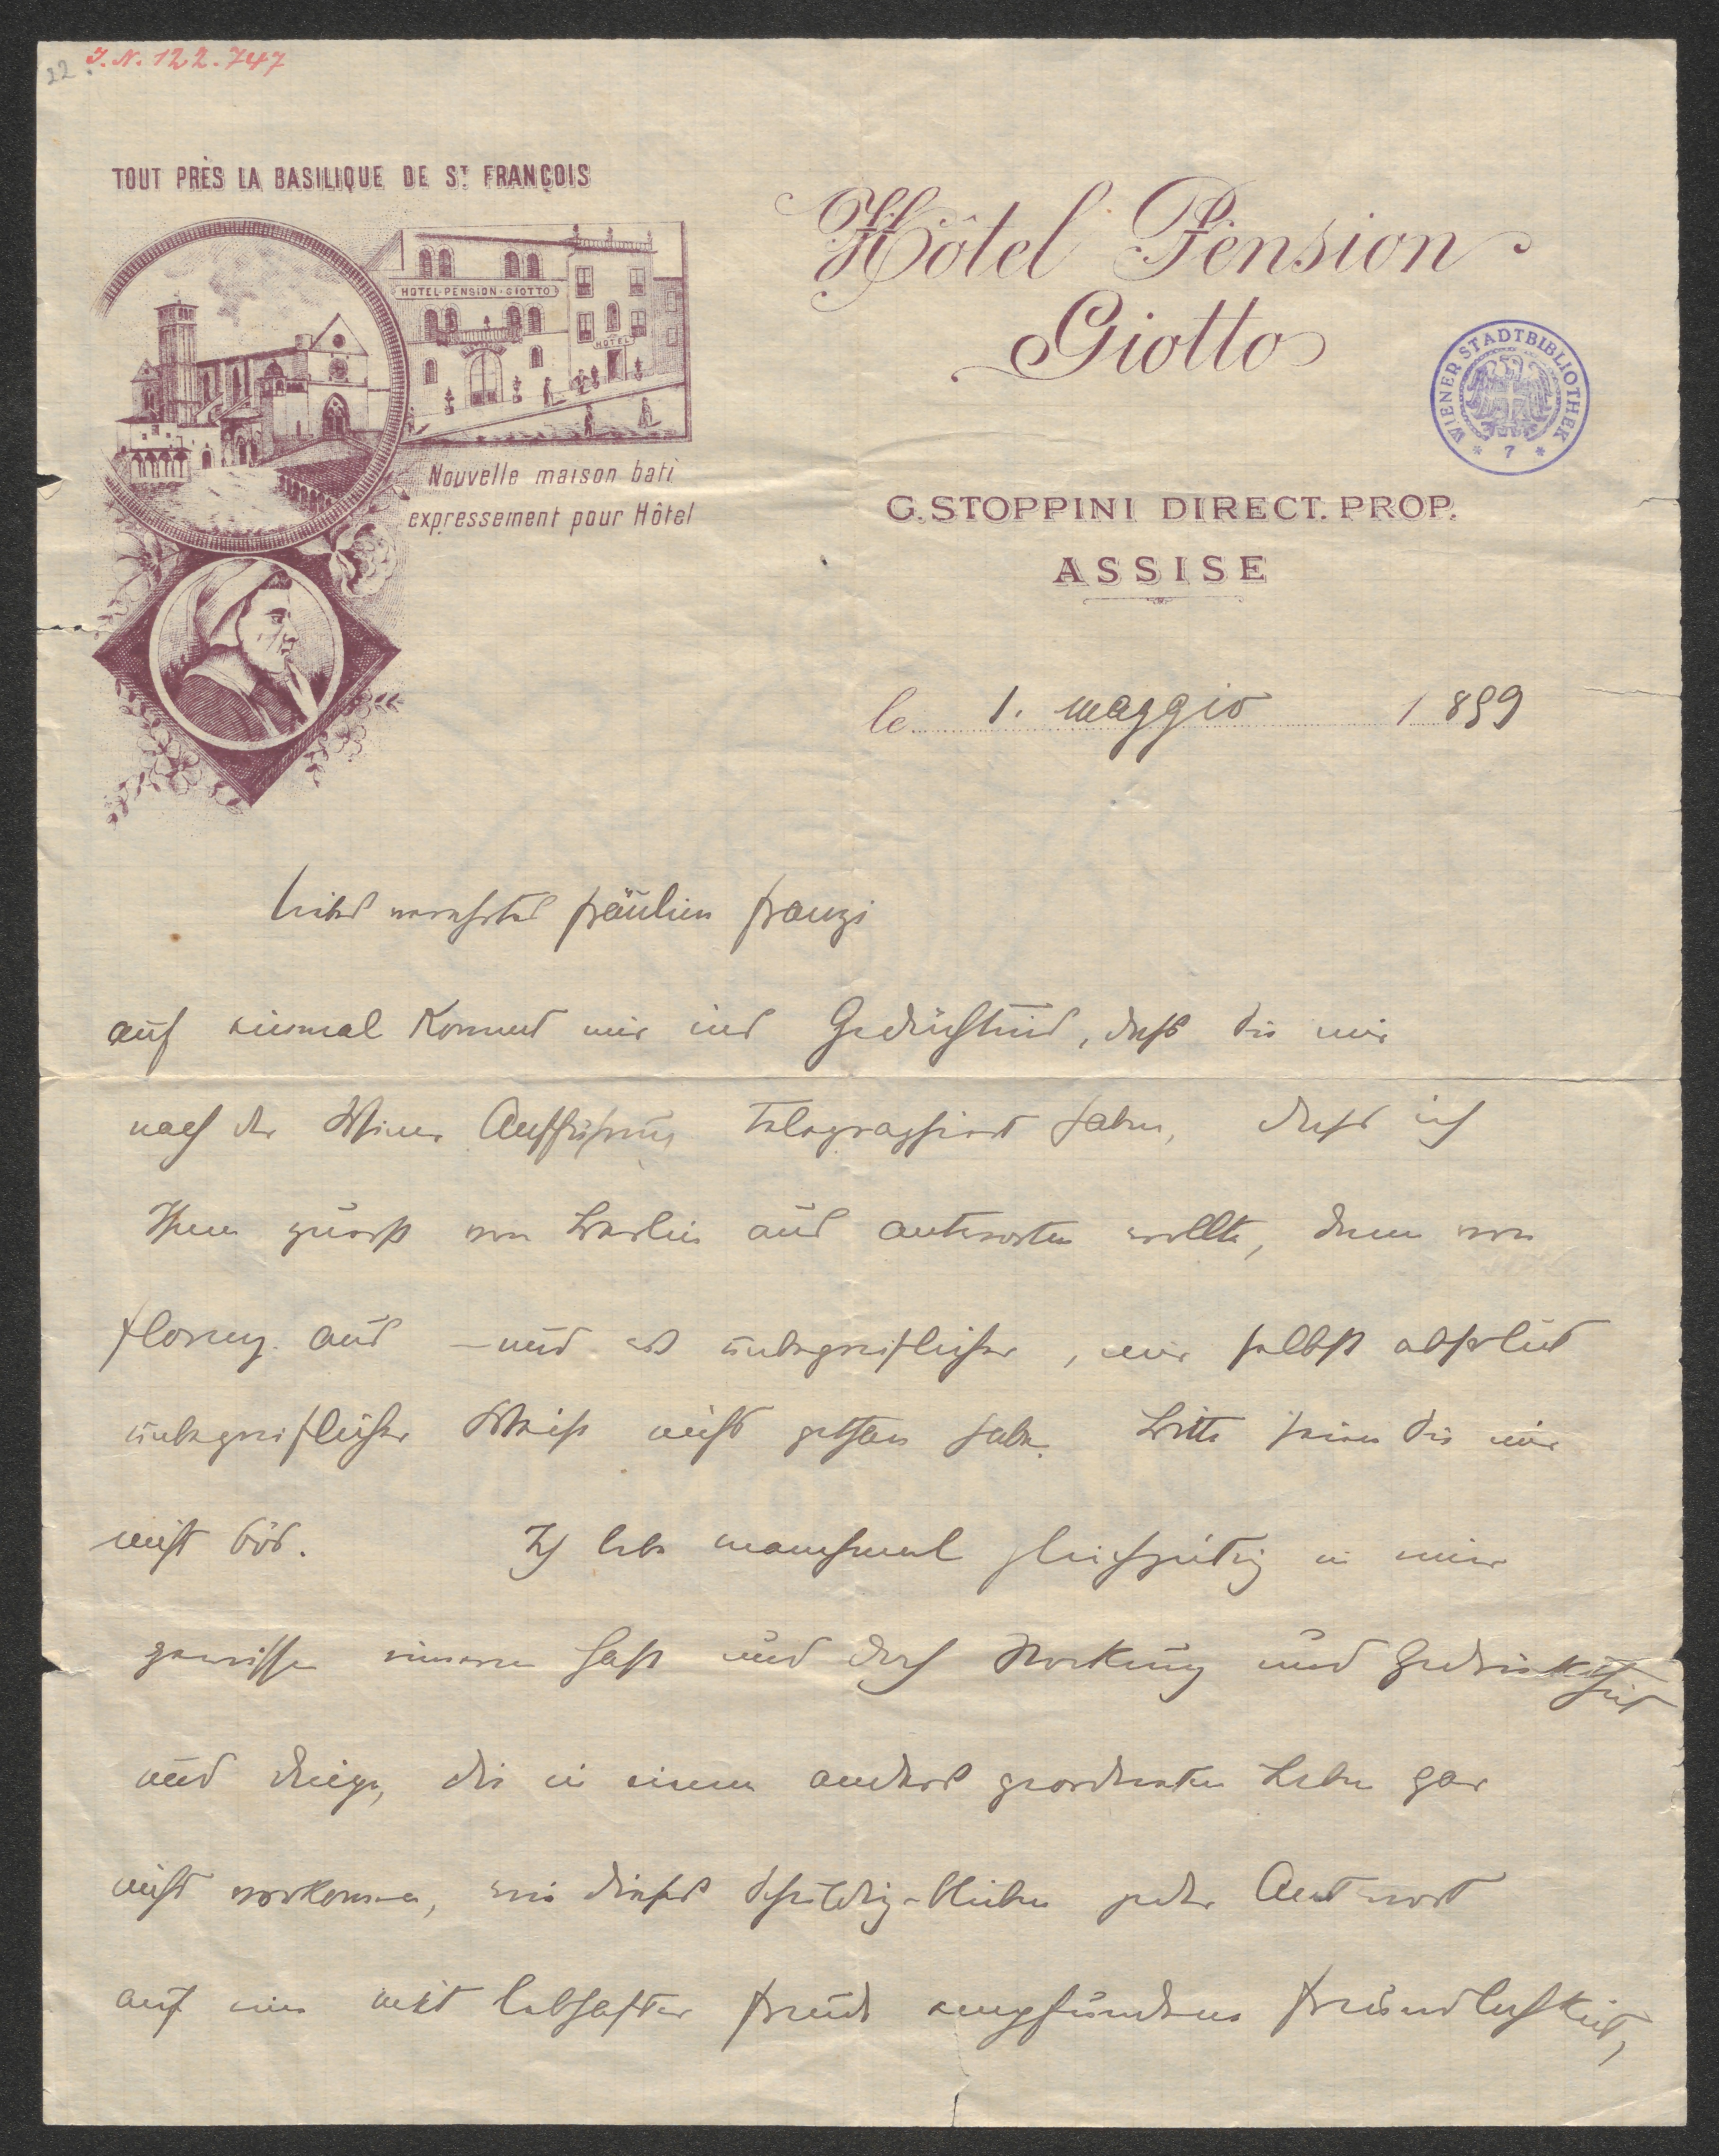 22
I. N. 122.747
TOUT PRÈS LA BASILIQUE DE ST FRANÇOIS
HOTEL-PENSION-GIOTTO
HOTEL
Nouvelle maison bati
expressement pour Hôtel
Hôtel Pension
Giotto
WIENER STADTBIBLIOTHEK
* 7 *
G. STOPPINI DIRECT. PROP.
ASSISE
le 1. maggio 1899
Liebes verehrtes Fräulein Franzi
auf einmal kommt mir ins Gedächtnis, dass Sie mir
nach der Wiener Aufführung telegraphiert haben, dass ich
Ihnen zuerst von Berlin aus antworten wollte, dann von
Florenz aus – und es unbegreiflicher, mir selbst absolut
unbegreiflicher Weise nicht gethan habe. Bitte seien Sie mir
nicht bös. Ich lebe manchmal gleichzeitig in einer
gewissen inneren Hast und doch Stockung und Gedrücktheit
und Dinge, die in einem anders geordneten Leben gar
nicht vorkommen, wie dieses Schuldig-bleiben jeder Antwort
auf eine mit lebhafter Freude empfundene Freundlichkeit,